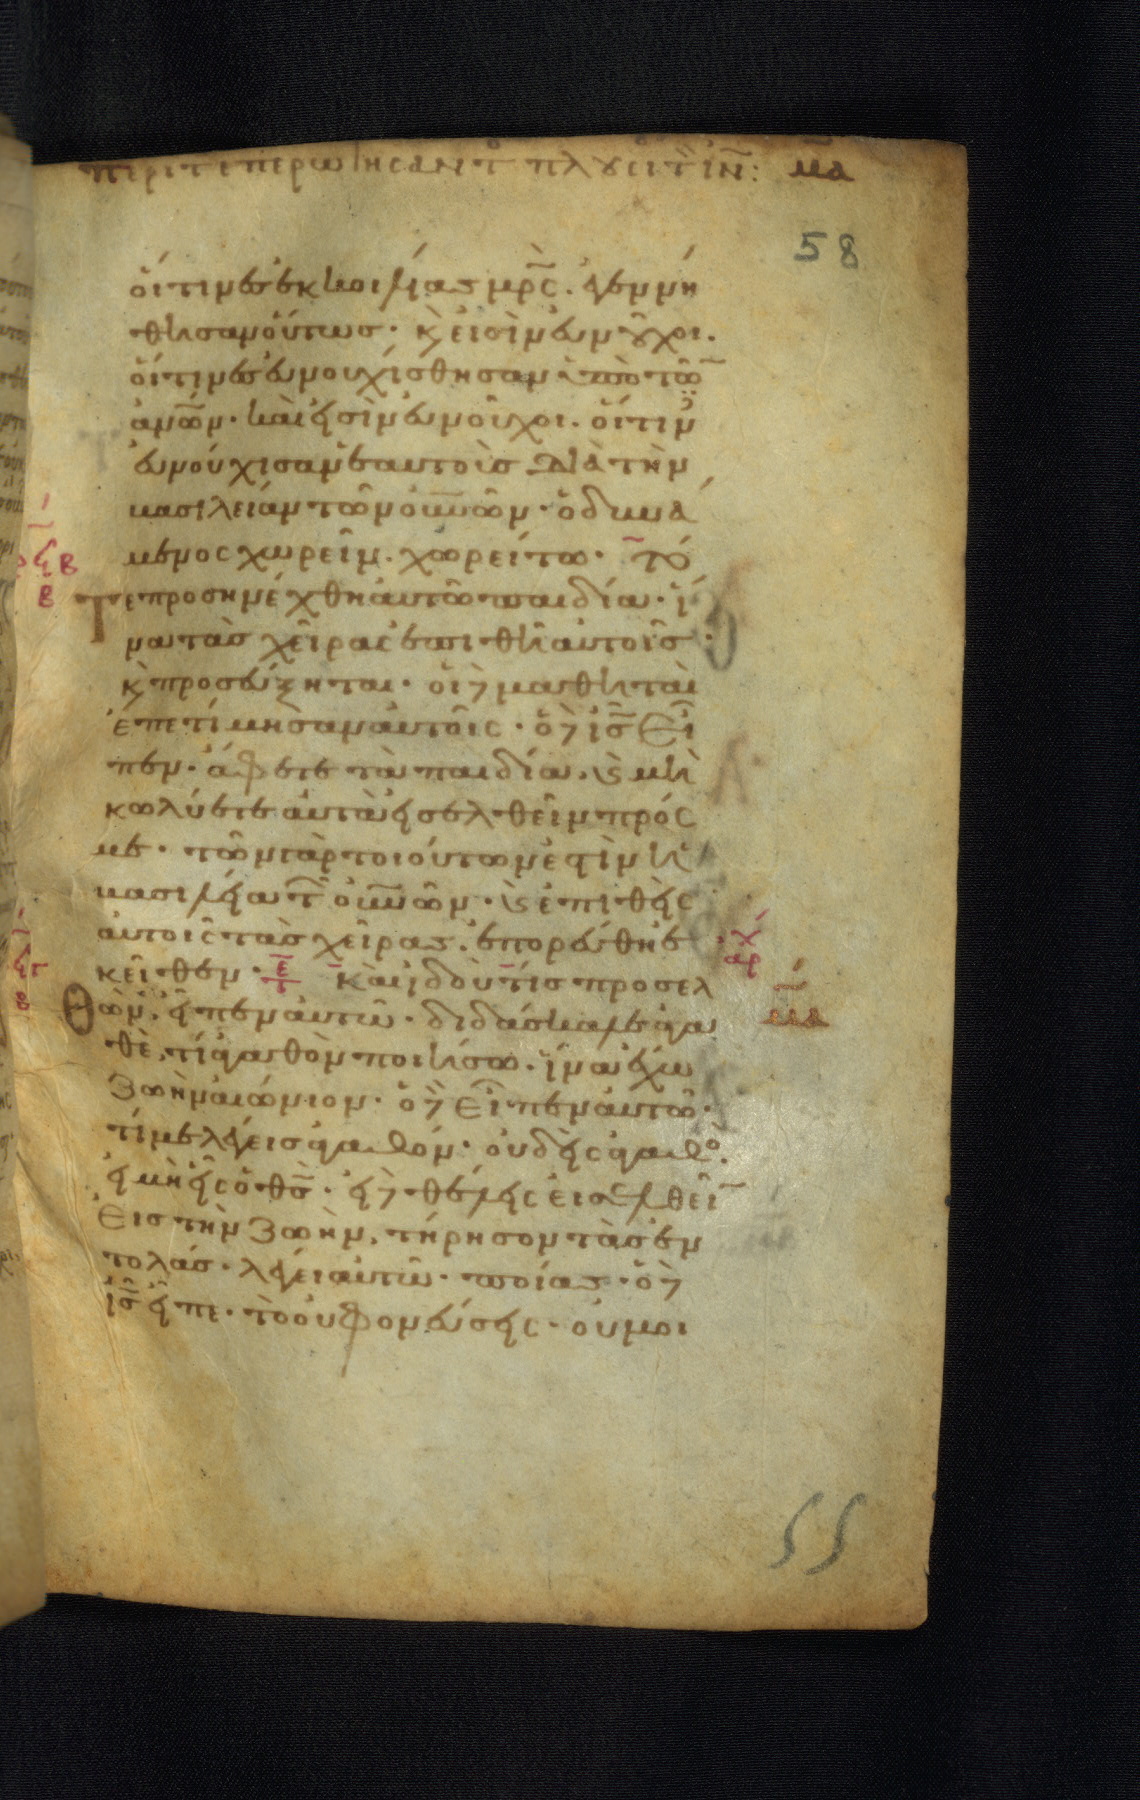 περι τ επερωτησαντ πλουσι τ ιν: μα
58
οἵτινες ἐκ κοιλίας μρς. ἐγεννή
θησαν οὕτως. κ εἰσὶν εὐνοῦχοι.
οἵτινες εὐνουχίσθησαν ὑπὸ τῶ
ἀνων. καὶ εἰσὶν εὐνοῦχοι. οἵτιν
εὐνούχισαν ἑαυτοὺς διὰ τὴν
βασιλείαν τῶν οὐνῶν. ὁ δυνά
μενος χωρεῖν. χωρείτω. Τό
τε προσηνέχθη αὐτῶ παιδία. ἵ
να τὰς χεῖρας ἐπιθῆ αὐτοῖς.
κ προσεύξηται. οἱ δ μαθηταὶ
ἐπετίμησαν αὐτοῖς. ὁ δ ις εἶ
πεν. ἄφετε τὰ παιδία. κ μὴ
κωλύετε αὐτὰ εἰσελθεῖν πρός
με. τῶν γὰρ τοιούτων ἐστὶν ἡ
βασιλεία τ οὐνῶν. κ ἐπιθεὶς
αὐτοῖς τὰς χεῖρας. ἐπορεύθη ἐ
κεῖθεν. καὶ ἰδοὺ τίς προσελ
θὼν, εἶπεν αὐτῶ. διδάσκαλε ἀγα
θὲ, τί ἀγαθὸν ποιήσω. ἵνα ἔχω
ζωὴν αἰώνιον. ὁ δ εἶπεν αὐτῶ.
τί με λέγεις ἀγαθόν. οὐδεὶς ἀγαθο.
εἰ μὴ εἷς ὁ θς. εἰ δ θέλεις εἰσελθεῖ
εἰς τὴν ζωὴν, τήρησον τὰς ἐν
τολάς. λέγει αὐτῶ. ποίας. ὁ δ
ις εἶπε. τὸ οὐ φονεύσεις. οὐ μοι
αρ
μα
55